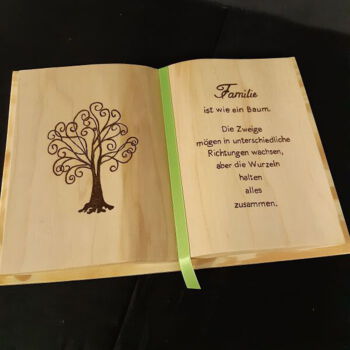 Familie
ist wie ein Baum.
Die Zweige
mögen in unterschiedliche
Richtungen wachsen,
aber die Wurzeln
halten
alles
zusammen.